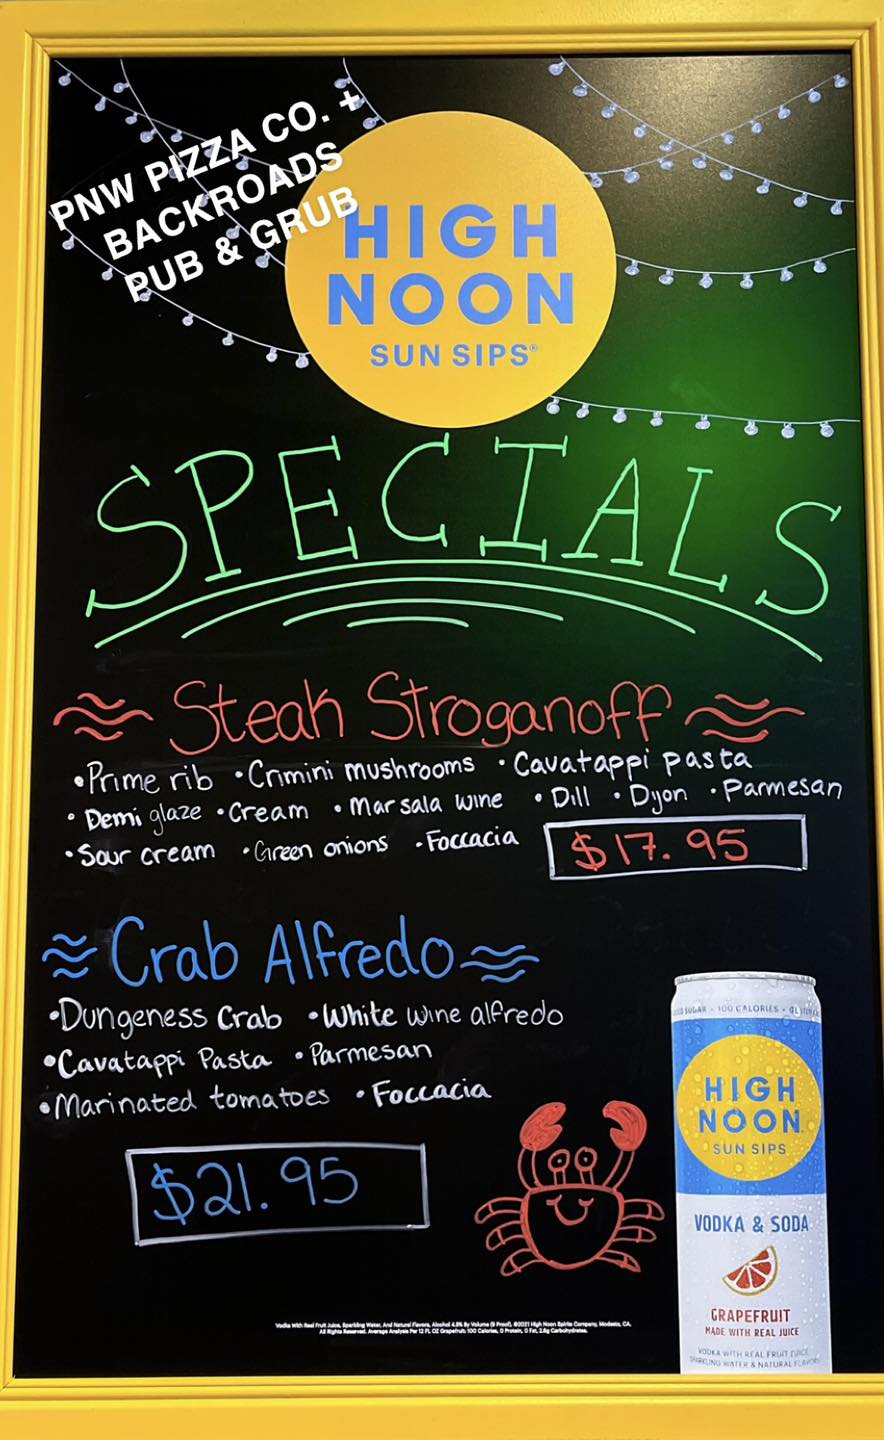 PNW PIZZA CO. +
BACKROADS
PUB & GRUB
HIGH
NOON
SUN SIPS®
SPECIALS
Steak Stroganoff
•Prime rib •Crimini mushrooms •Cavatappi pasta
•Demi glaze •Cream •Marsala wine •Dill •Dyon •Parmesan
•Sour cream •Green onions •Foccacia
$17.95
Crab Alfredo
•Dungeness Crab •White wine alfredo
•Cavatappi Pasta •Parmesan
•Marinated tomatoes •Foccacia
$21.95
SUGAR • 100 CALORIES •
HIGH
NOON
SUN SIPS
VODKA & SODA
GRAPEFRUIT
MADE WITH REAL JUICE
VODKA WITH REAL FRUIT JUICE,
SPARKLING WATER & NATURAL FLAVORS
Vodka With Real Fruit Juice, Sparkling Water, And Natural Flavors, Alcohol 4.5% By Volume (9 Proof). ©2021 High Noon Spirits Company, Modesto, CA.
All Rights Reserved. Average Analysis Per 12 FL OZ Grapefruit: 100 Calories, 0 Protein, 0 Fat, 2.6g Carbohydrates.